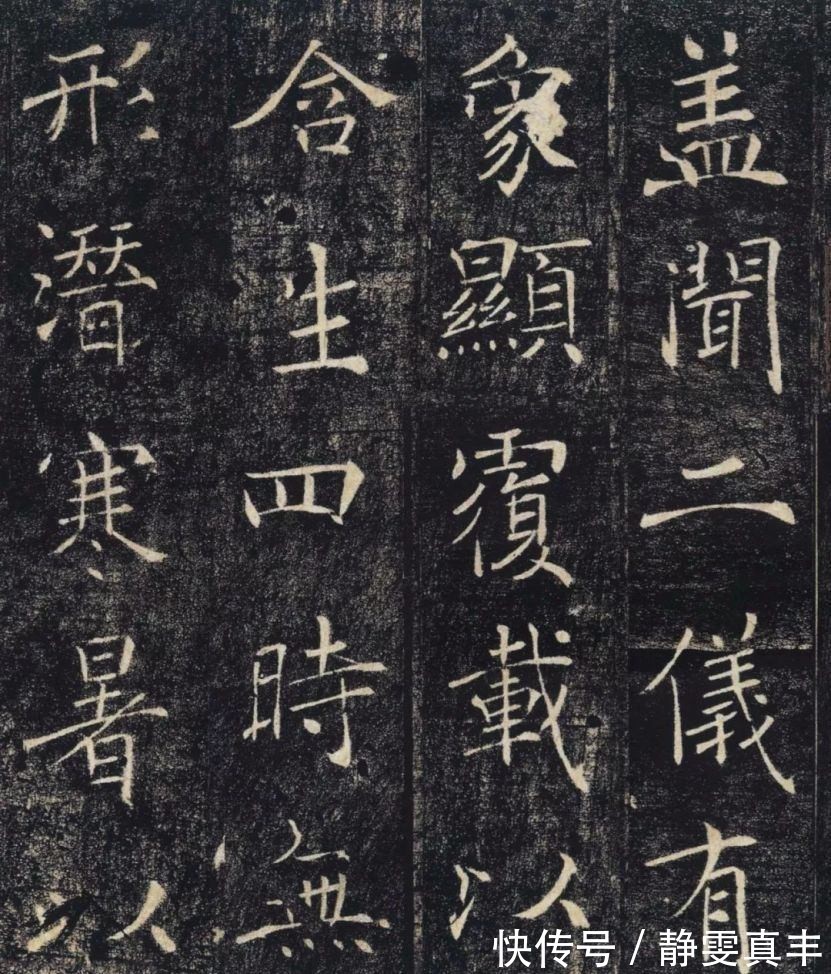 盖聞二儀有
象顯覆載以
含生四時無
形潛寒暑以
快传号 / 静雯真丰